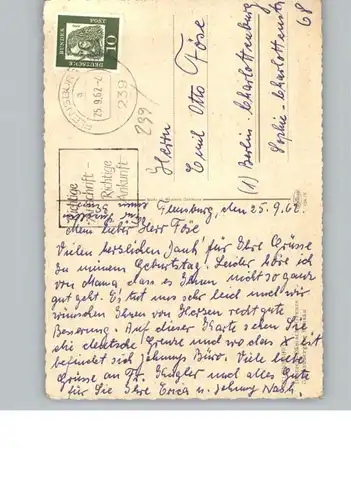 DEUTSCHE
BUNDESPOST
10
FLENSBURG
a
25.9.62
239
239
Richtige
Anschrift –
Richtige
Ankunft
Herrn
Emil Otto Föse
(1) Berlin-Charlottenburg
Sophie-Charlottenstr
68
Flensburg, den 25.9.62.
Mein lieber Herr Föse
Vielen herzlichen Dank für Ihre Grüsse
zu meinem Geburtstag. Leider höre ich
von Mama, dass es Ihnen nicht so ganz
gut geht. Es tut uns sehr leid und wir
wünschen Ihnen von Herzen recht gute
Besserung. Auf dieser Karte sehen Sie
die deutsche Grenze und wo das X ist
befindet sich Johnnys Büro. Viele liebe
Grüsse an Fr. und alles Gute
für Sie Ihre Erica u. Johnny Nash.